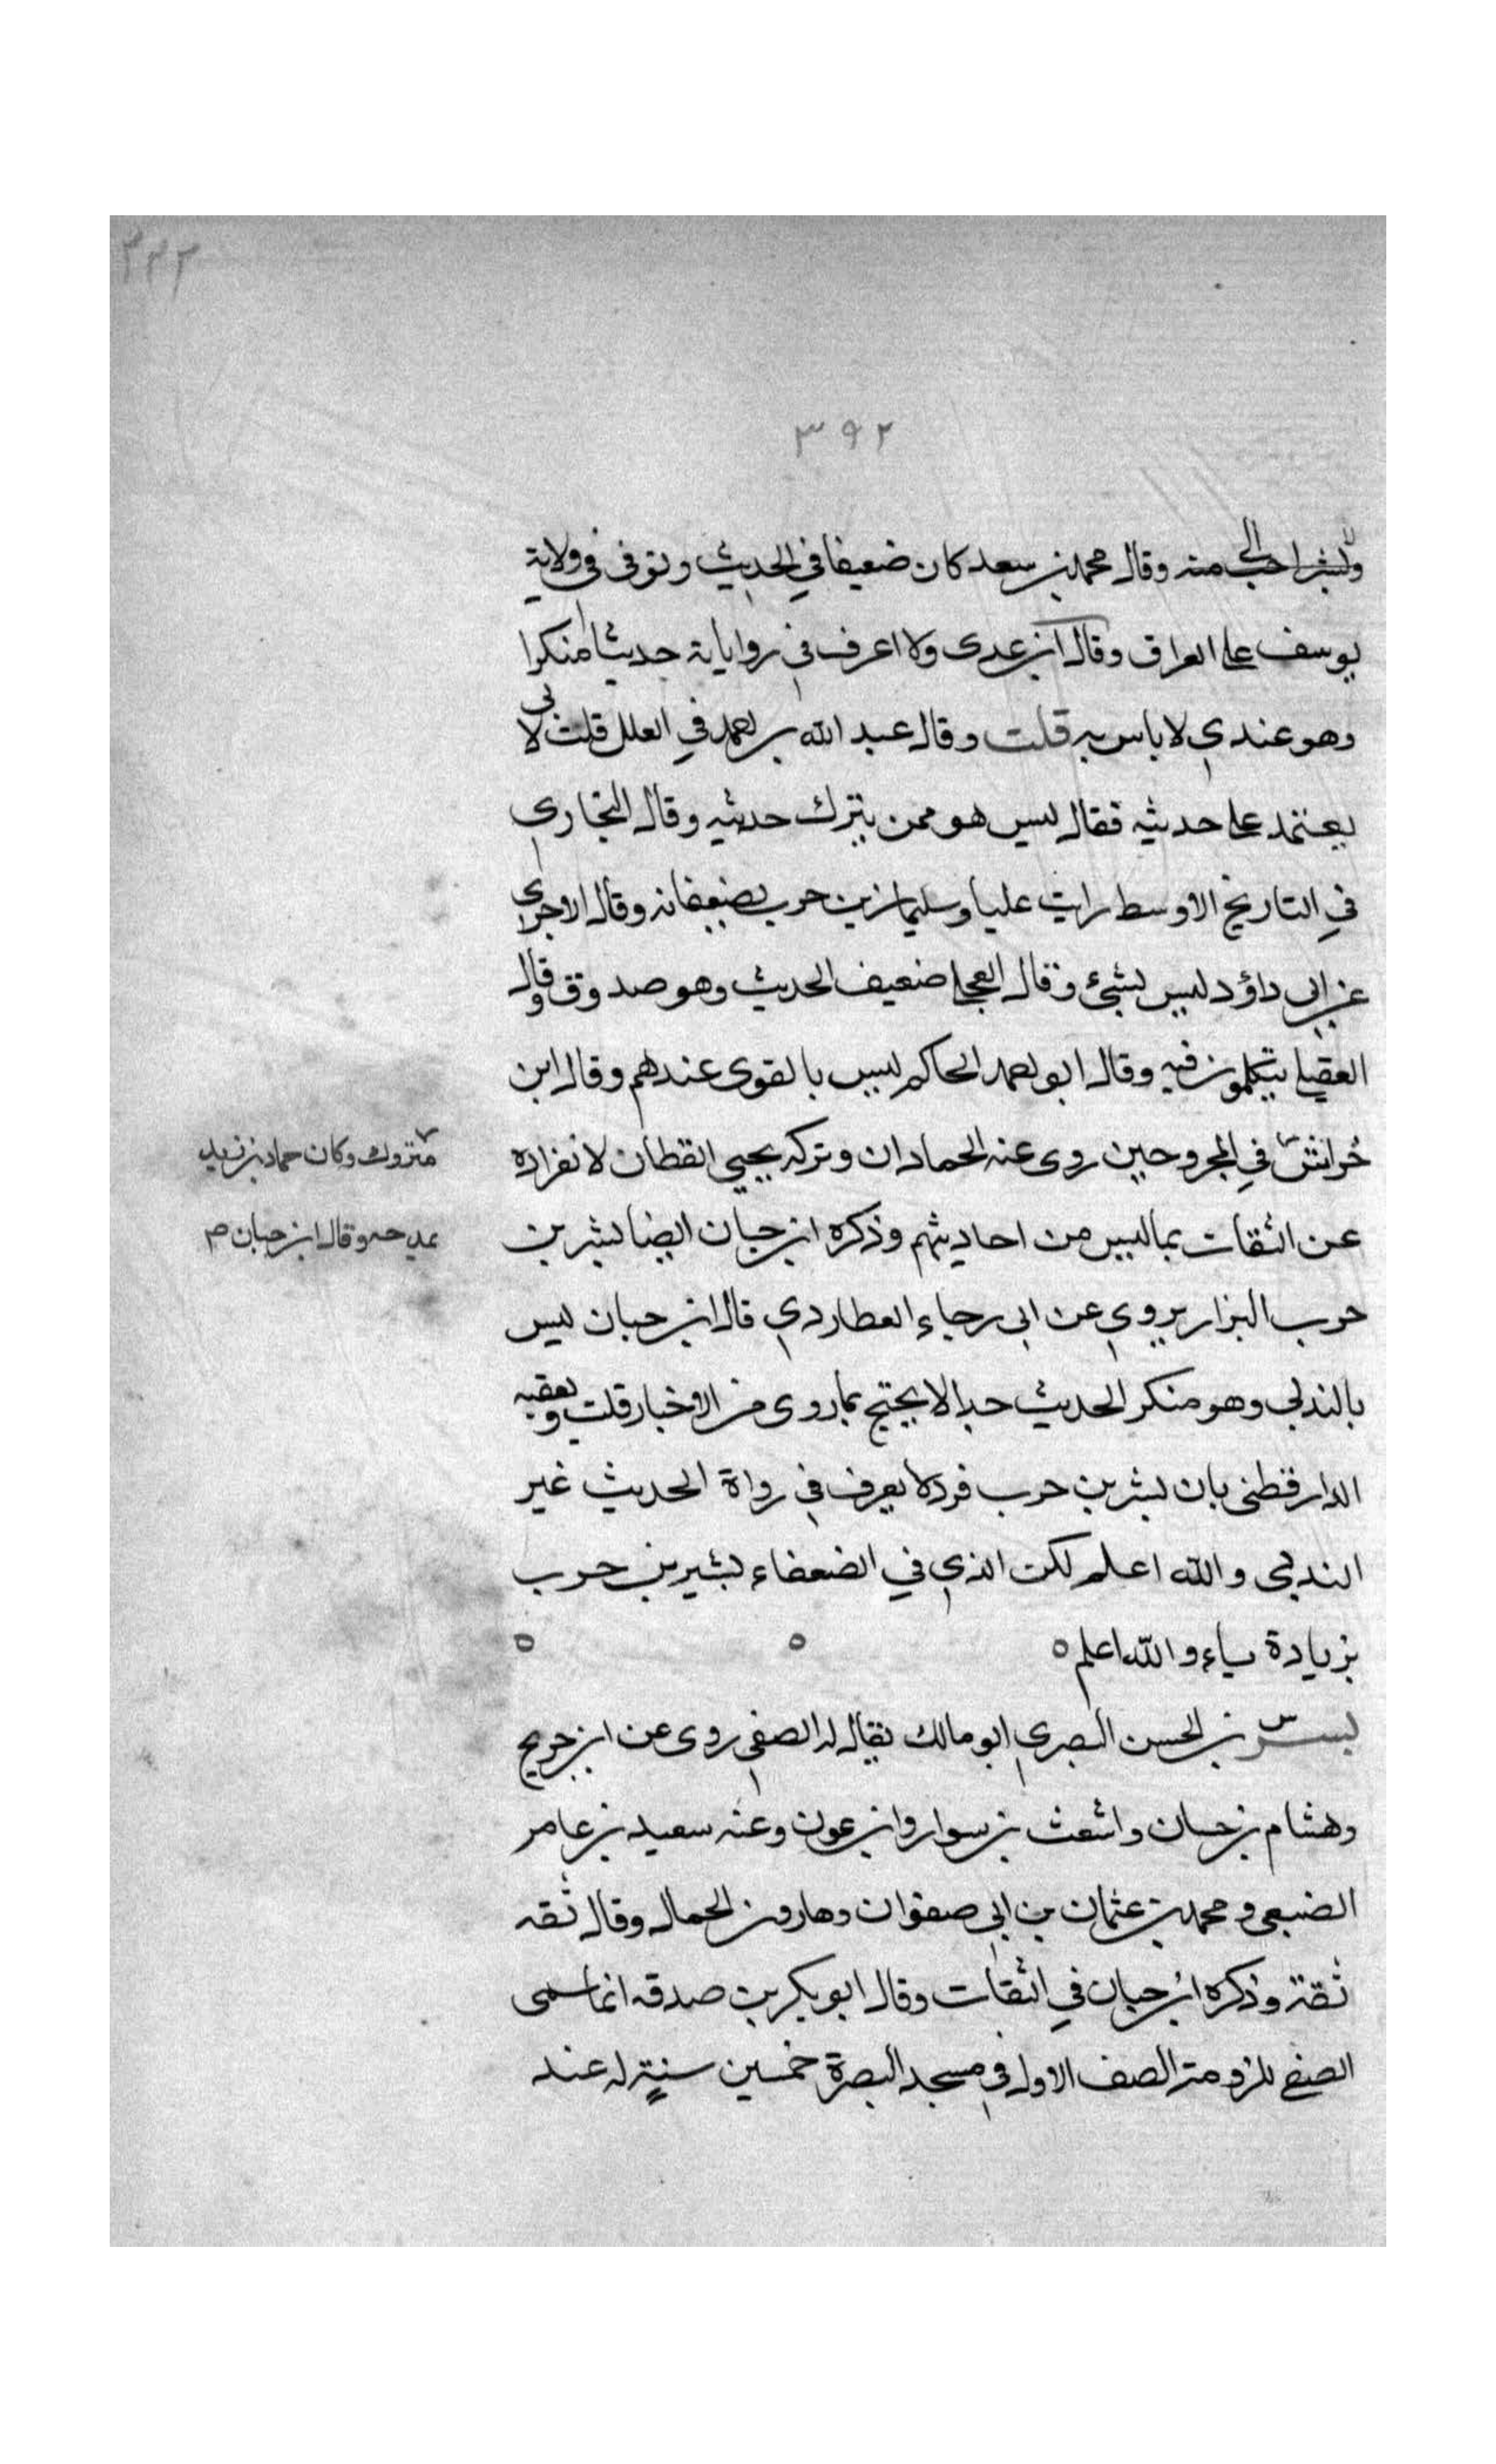 ٣٣٢
٣٩٢
ولبشر احب الي منه وقال محمد بن سعد كان ضعيفا في الحديث وتوفى في ولاية
يوسف على العراق وقال ابن عدى ولا اعرف في رواياته حديثا منكرا
وهو عندي لا باس به قلت وقال عبد الله بن احمد في العلل قلت لابي
يعتمد على حديثه فقال ليس هو ممن يترك حديثه وقال البخاري
في التاريخ الاوسط رايت عليا وسليمان بن حرب يضعفانه وقال الاجري
عن ابي داؤد ليس بشئ وقال العجلي ضعيف الحديث وهو صدوق وقال
العقيلي يتكلمون فيه وقال ابو احمد الحاكم ليس بالقوى عندهم وقال ابن
خراش في المجروحين روى عنه الحمادان وتركه يحيى القطان لانفراده
متروك وكان حماد بن زيد
يمدحه وقال ابن حبان صح
عن الثقات بما ليس من احاديثهم وذكره ابن حبان ايضا بشر بن
حرب البزار يروي عن ابي رجاء العطاردي قال ابن حبان ليس
بالندبي وهو منكر الحديث جدا لا يحتج بما روى من الاخبار قلت وتعقبه
الدارقطني بان بشر بن حرب فرد لا يعرف في رواة الحديث غير
الندبي والله اعلم لكن الذي في الضعفاء بشير بن حرب
بزيادة ياء والله اعلم ٥ ٥ ٥
بشر بن الحسن البصري ابو مالك يقال له الصفي روى عن ابن جريج
وهشام بن حسان واشعث بن سوار وابن عون وعنه سعيد بن عامر
الضبعي ومحمد بن عثمان بن ابي صفوان وهارون الحمال وقال ثقه
ثقة وذكره ابن حبان في الثقات وقال ابو بكر بن صدقه انما سمى
الصفي للزومه الصف الاول في مسجد البصرة خمسين سنة له عند